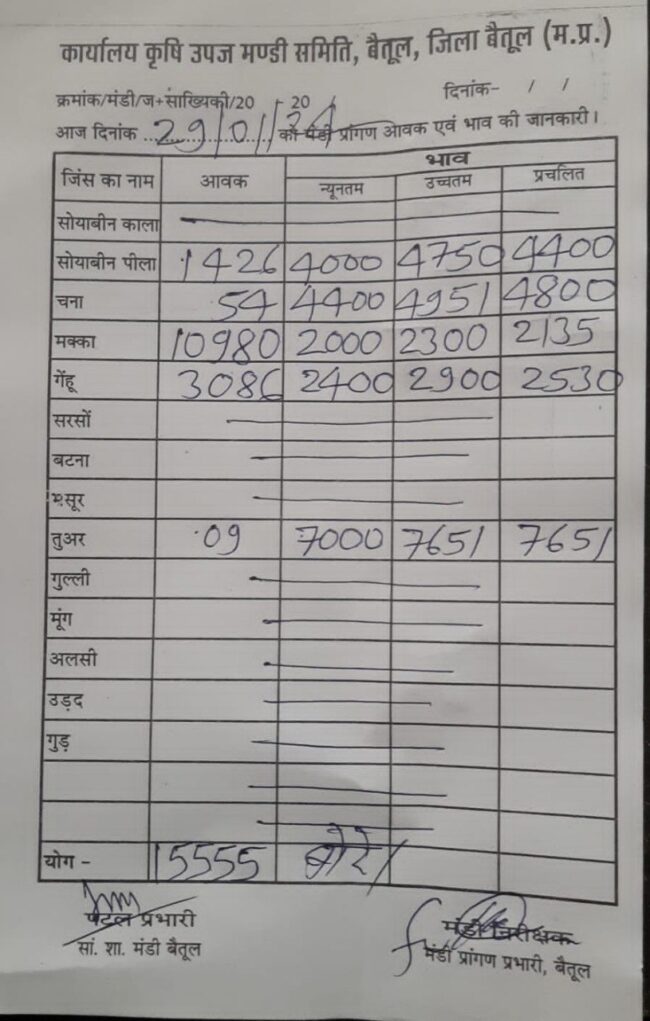 कार्यालय कृषि उपज मण्डी समिति, बैतूल, जिला बैतूल (म.प्र.)
क्रमांक/मंडी/ज+सांख्यिकी/20 20 दिनांक- / /
आज दिनांक 29/01/ को मंडी प्रांगण आवक एवं भाव की जानकारी।
जिंस का नाम आवक भाव
न्यूनतम उच्चतम प्रचलित
सोयाबीन काला
सोयाबीन पीला 1426 4000 4750 4400
चना 54 4400 4951 4800
मक्का 10980 2000 2300 2135
गेंहू 3086 2400 2900 2530
सरसों
बटना
मसूर
तुअर 09 7000 7651 7651
गुल्ली
मूंग
अलसी
उड़द
गुड़
योग - 15555 बोरे
पटल प्रभारी मंडी निरीक्षक
सां. शा. मंडी बैतूल मंडी प्रांगण प्रभारी, बैतूल